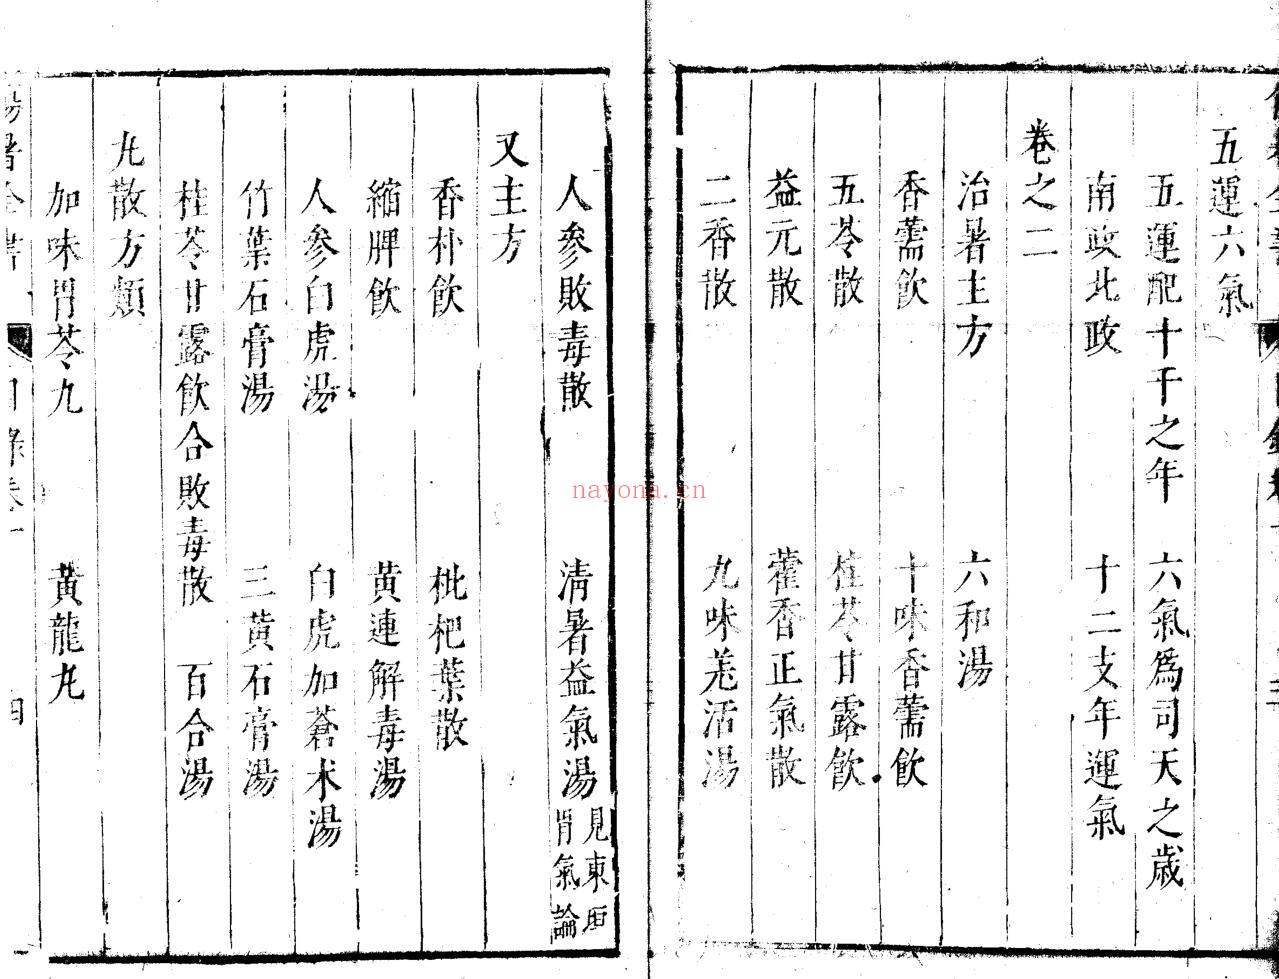 五運六氣
五運配十干之年　六氣爲司天之歲
南政北政　十二支年運氣
卷之二
治暑主方　六和湯
香薷飲　十味香薷飲
五苓散　桂苓甘露飲
益元散　藿香正氣散
二香散　九味羌活湯
人參敗毒散　清暑益氣湯 見東垣胃氣論
又主方
香朴飲　枇杷葉散
縮脾飲　黃連解毒湯
人參白虎湯　白虎加蒼朮湯
竹葉石膏湯　三黃石膏湯
桂苓甘露飲合敗毒散　百合湯
丸散方類
加味胃苓丸　黃龍丸
傷暑全書　目錄卷一　四
nayona.cn